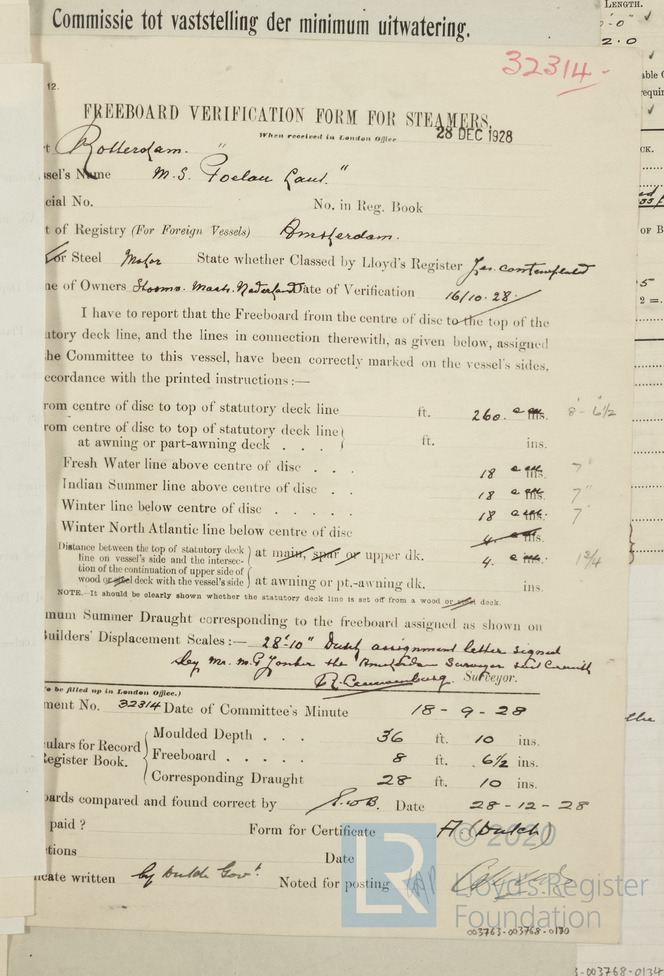 Commissie tot vaststelling der minimum uitwatering.
LENGTH.
2.0
32314-
12.
FREEBOARD VERIFICATION FORM FOR STEAMERS.
When received in London Office
28 DEC 1928
Rotterdam.
Name M.S. "Poelau Laut."
cial No. No. in Reg. Book
t of Registry (For Foreign Vessels) Amsterdam.
or Steel Motor State whether Classed by Lloyd's Register Yes. contemplated
ne of Owners Stoomv. Maats. Nederland Date of Verification 16/10.28.
I have to report that the Freeboard from the centre of disc to the top of the
utory deck line, and the lines in connection therewith, as given below, assigned
the Committee to this vessel, have been correctly marked on the vessel's sides,
ccordance with the printed instructions:—
rom centre of disc to top of statutory deck line ft. 260. ins. 8'-6½
rom centre of disc to top of statutory deck line
at awning or part-awning deck . . . ft. ins.
Fresh Water line above centre of disc . . . 18 ins. 7"
Indian Summer line above centre of disc . . 18 ins. 7"
Winter line below centre of disc . . . . . 18 ins. 7"
Winter North Atlantic line below centre of disc 4. ins.
Distance between the top of statutory deck
line on vessel's side and the intersec-
tion of the continuation of upper side of
wood or steel deck with the vessel's side
at main, spar or upper dk. 4. ins. 1¾
at awning or pt.-awning dk. ins.
NOTE.—It should be clearly shown whether the statutory deck line is set off from a wood or steel deck.
mum Summer Draught corresponding to the freeboard assigned as shown on
Builders' Displacement Scales:— 28'-10" Dutch assignment letter signed
by Mr.
Surveyor.
to be filled up in London Office.)
ment No. 32314 Date of Committee's Minute 18-9-28
culars for Record
Register Book.
Moulded Depth . . . 36 ft. 10 ins.
Freeboard . . . . . 8 ft. 6½ ins.
Corresponding Draught 28 ft. 10 ins.
oards compared and found correct by Date 28-12-28
paid ? Form for Certificate A (Dutch)
ctions Date
cate written by Dutch Govt. Noted for posting
© 2020
LR
Lloyd's Register
Foundation
003763-003768-0130
3-003768-0134